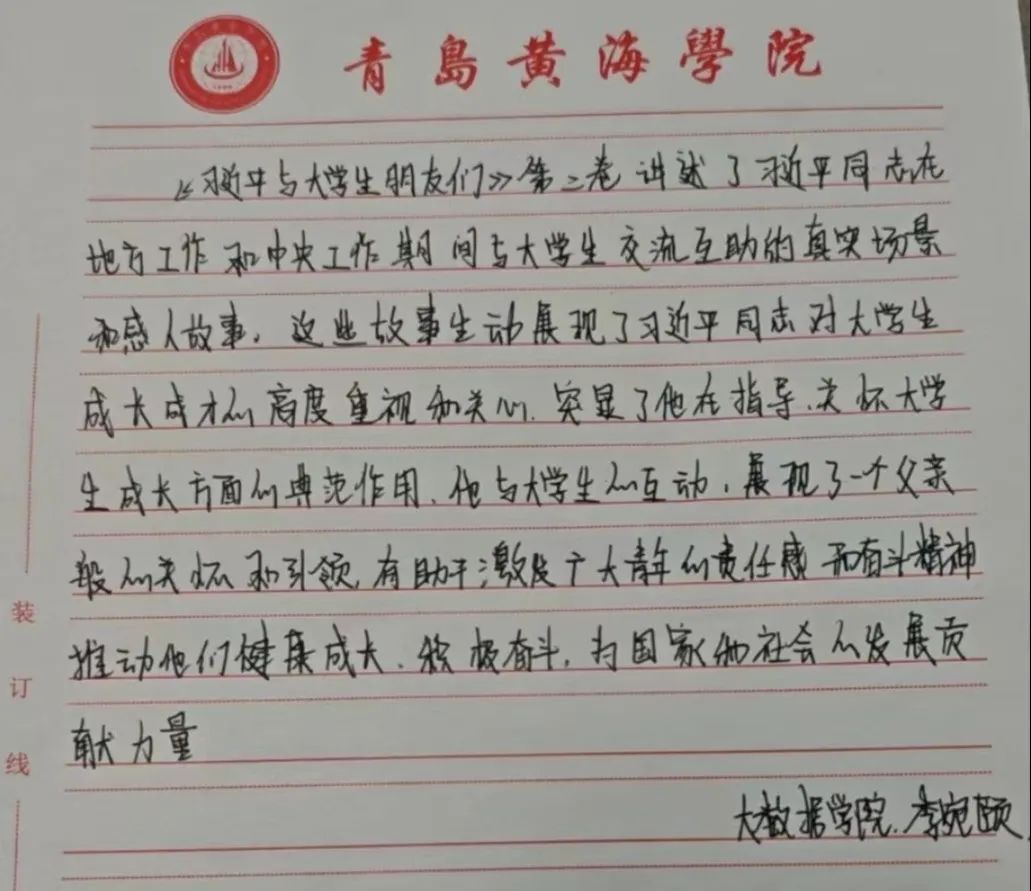 青島黄海學院
《习近平与大学生朋友们》第二卷讲述了习近平同志在
地方工作和中央工作期间与大学生交流互助的真实场景
和感人故事。这些故事生动展现了习近平同志对大学生
成长成才的高度重视和关心,突显了他在指导、关怀大学
生成长方面的典范作用、他与大学生的互动,展现了一个父亲
般的关怀和引领,有助于激发广大青年的责任感和奋斗精神
推动他们健康成长、积极奋斗,为国家和社会的发展贡
献力量
大数据学院.李宛颐
装
订
线